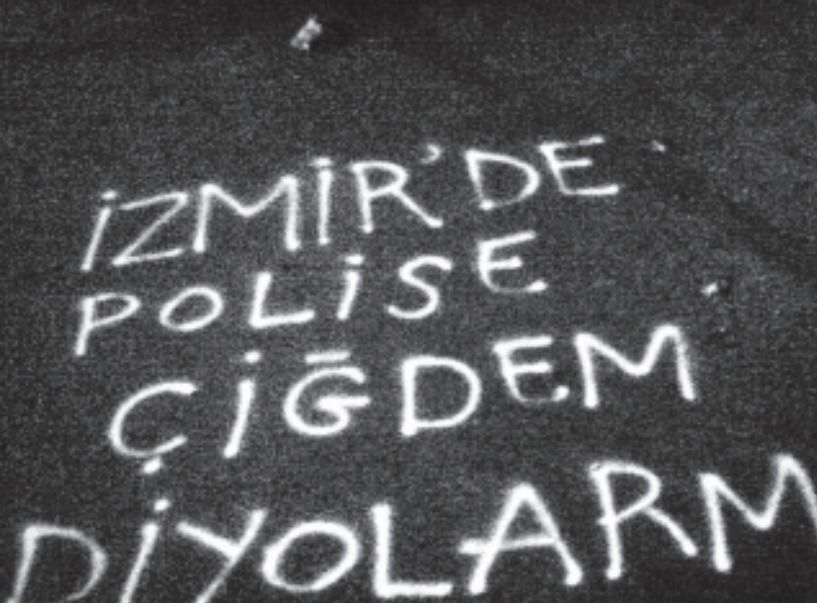 İZMİR'DE
POLİSE
ÇİĞDEM
DİYOLARM